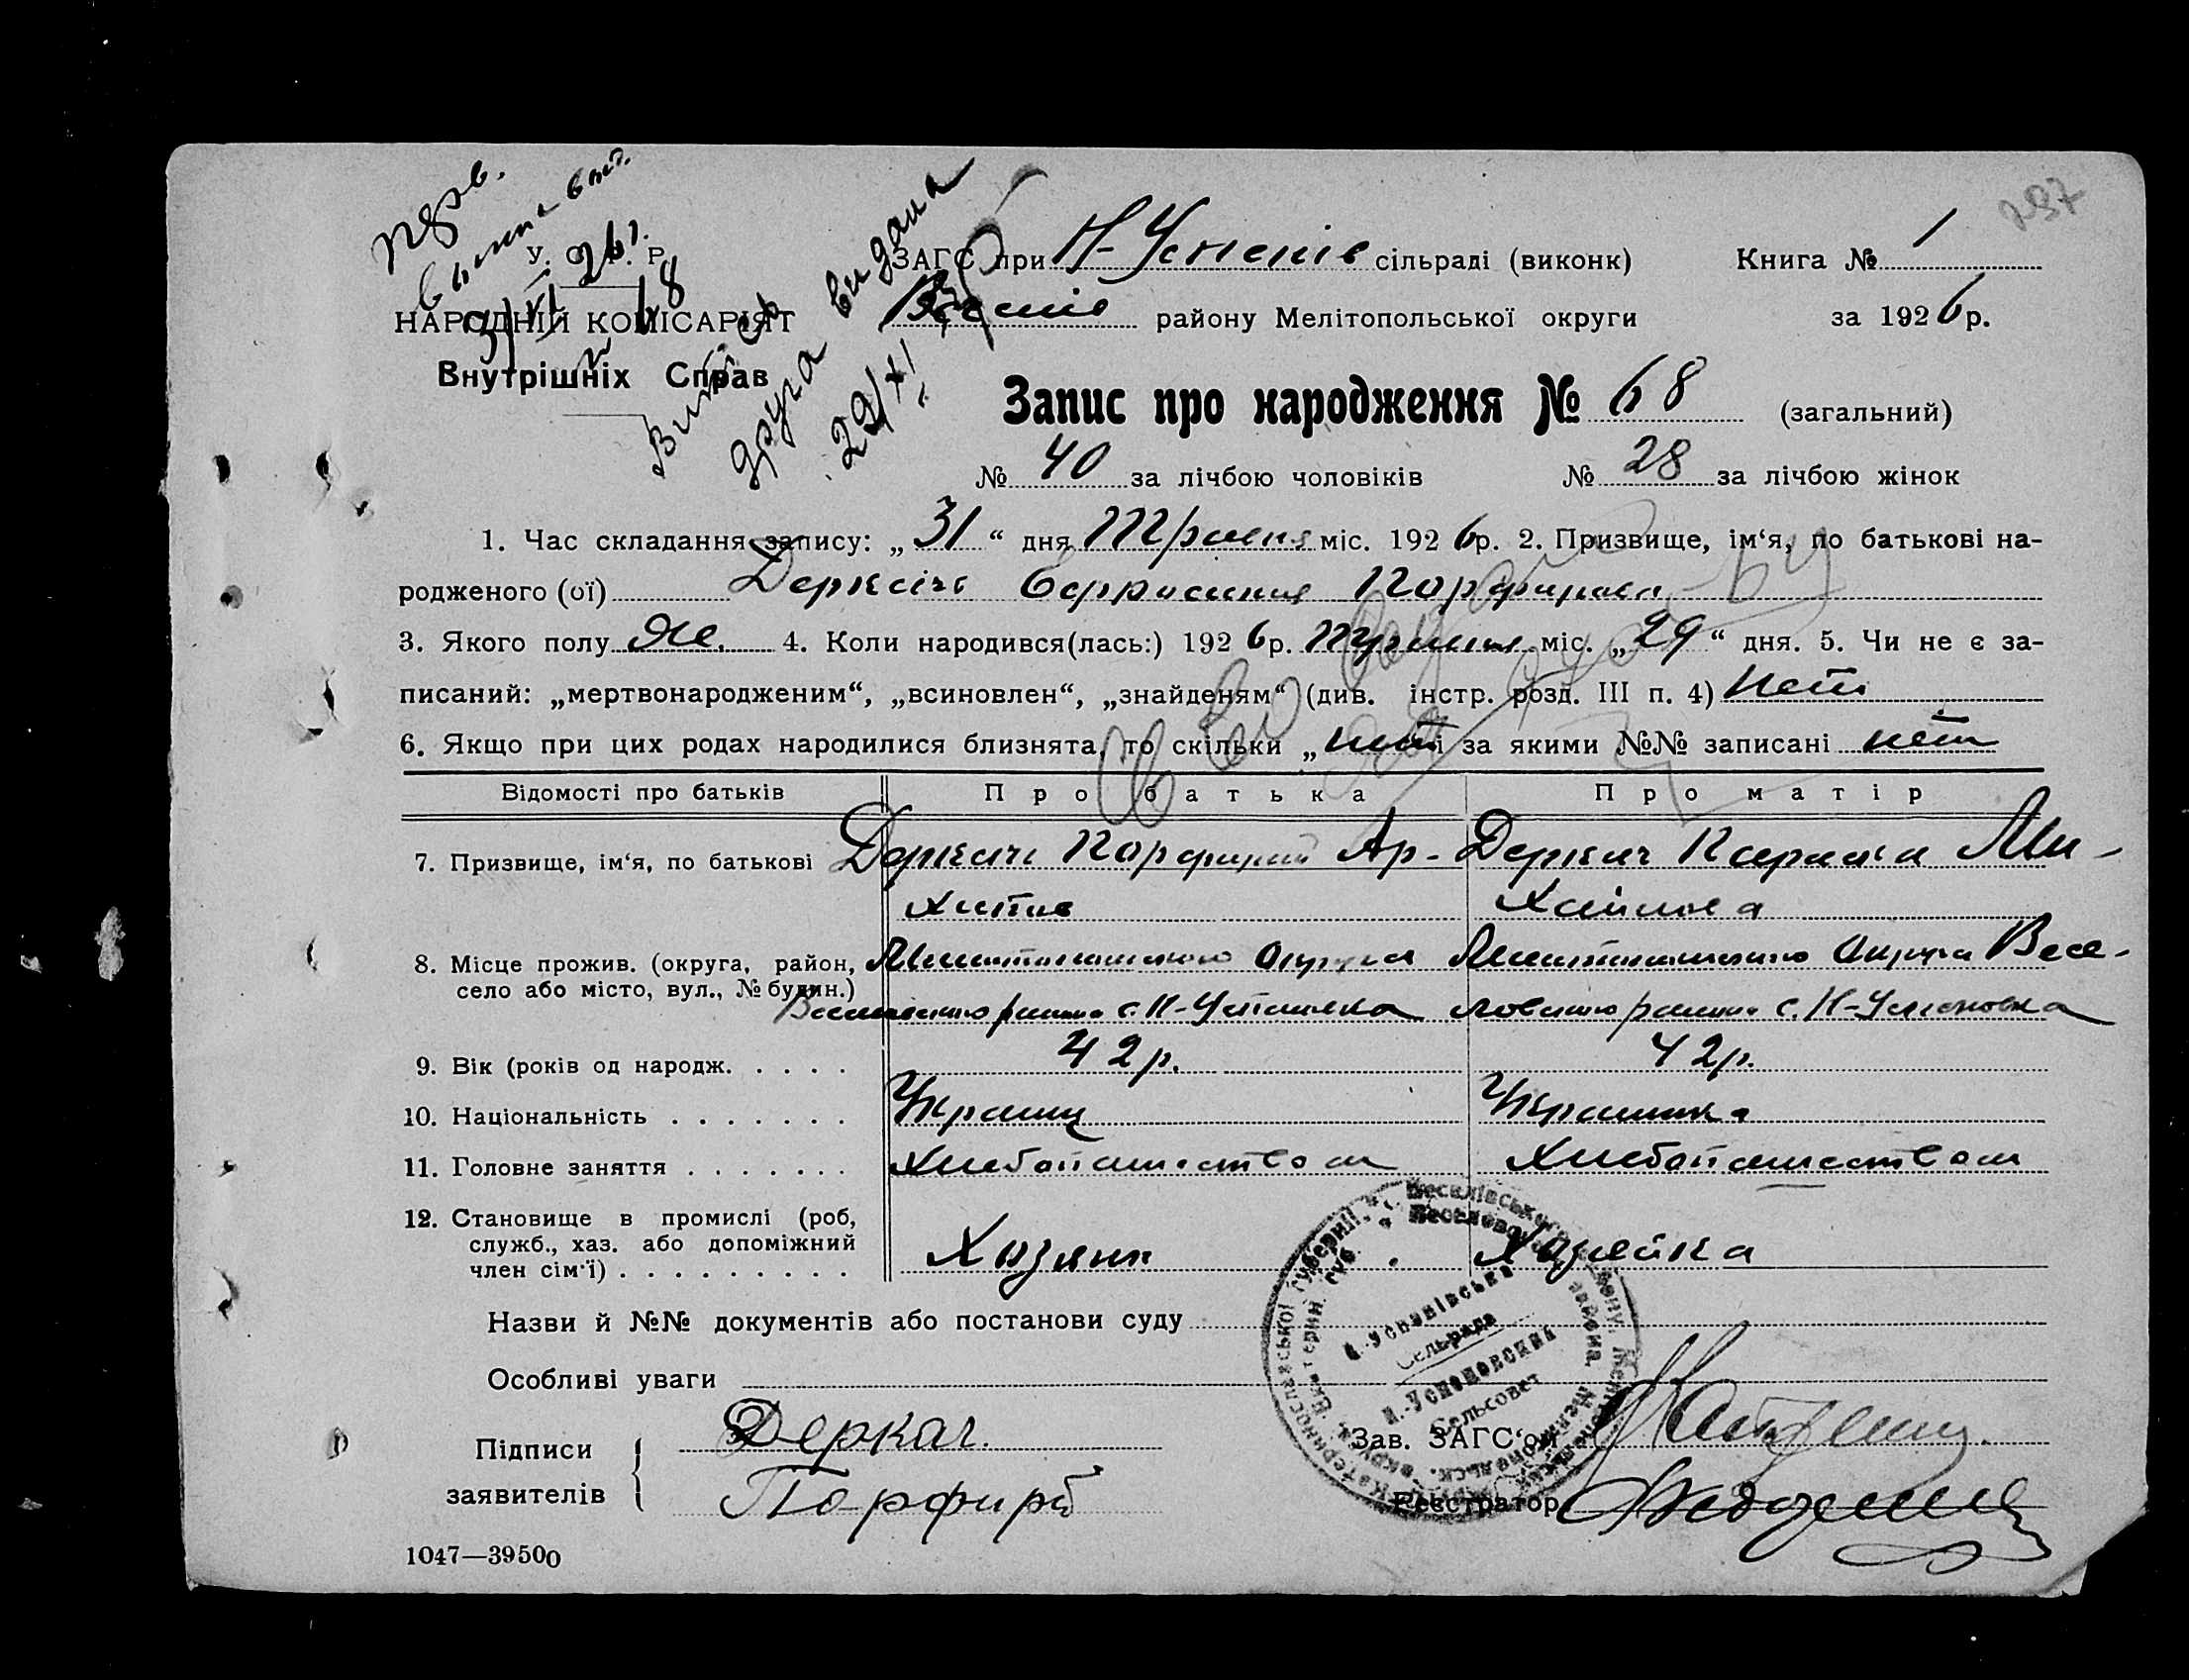 У. С. Р. Р.
НАРОДНІЙ КОМІСАРІЯТ
Внутрішніх Справ
Витяг
друга видана
29/XI
ЗАГС при Н-Успенів сільраді (виконк) Книга № 1
району Мелітопольської округи за 1926 р.
Запис про народження № 68 (загальний)
№ 40 за лічбою чоловіків № 28 за лічбою жінок
1. Час складання запису: „31“ дня Травня міс. 1926 р. 2. Призвище, ім‘я, по батькові на-
родженого (ої) Деркачь Порфирова
3. Якого полу Ж. 4. Коли народився(лась:) 1926 р. Травня міс. „29“ дня. 5. Чи не є за-
писаний: „мертвонародженим“, „всиновлен“, „знайденям“ (див. інстр. розд. III п. 4) нет
6. Якщо при цих родах народилися близнята, то скільки „нет і за якими №№ записані нет
Відомості про батьків Про батька Про матір
7. Призвище, ім‘я, по батькові Деркачь Порфирий Ар- Деркач Ми-
хипов хайлова
8. Місце прожив. (округа, район, Мелитопольского Округа Мелитопольского Округа Весе-
село або місто, вул., № будин.) Веселовского района с. Н-Успеновка ловского района с. Н-Успеновка
9. Вік (років од народж. . . . . 42 р. 42 р.
10. Національність . . . . . . . Украинец Украинка
11. Головне заняття . . . . . . . Хлебопашеством Хлебопашеством
12. Становище в промислі (роб,
служб., хаз. або допоміжний Хозяин Хозяйка
член сім‘ї) . . . . . . . . .
Назви й №№ документів або постанови суду
Особливі уваги
Підписи Деркач.
заявителів Порфирй
Зав. ЗАГС‘ом
Реєстратор
Н.-Успенівська
Сельрада
Н.-Успеновский
Сельсовет
1047—39500